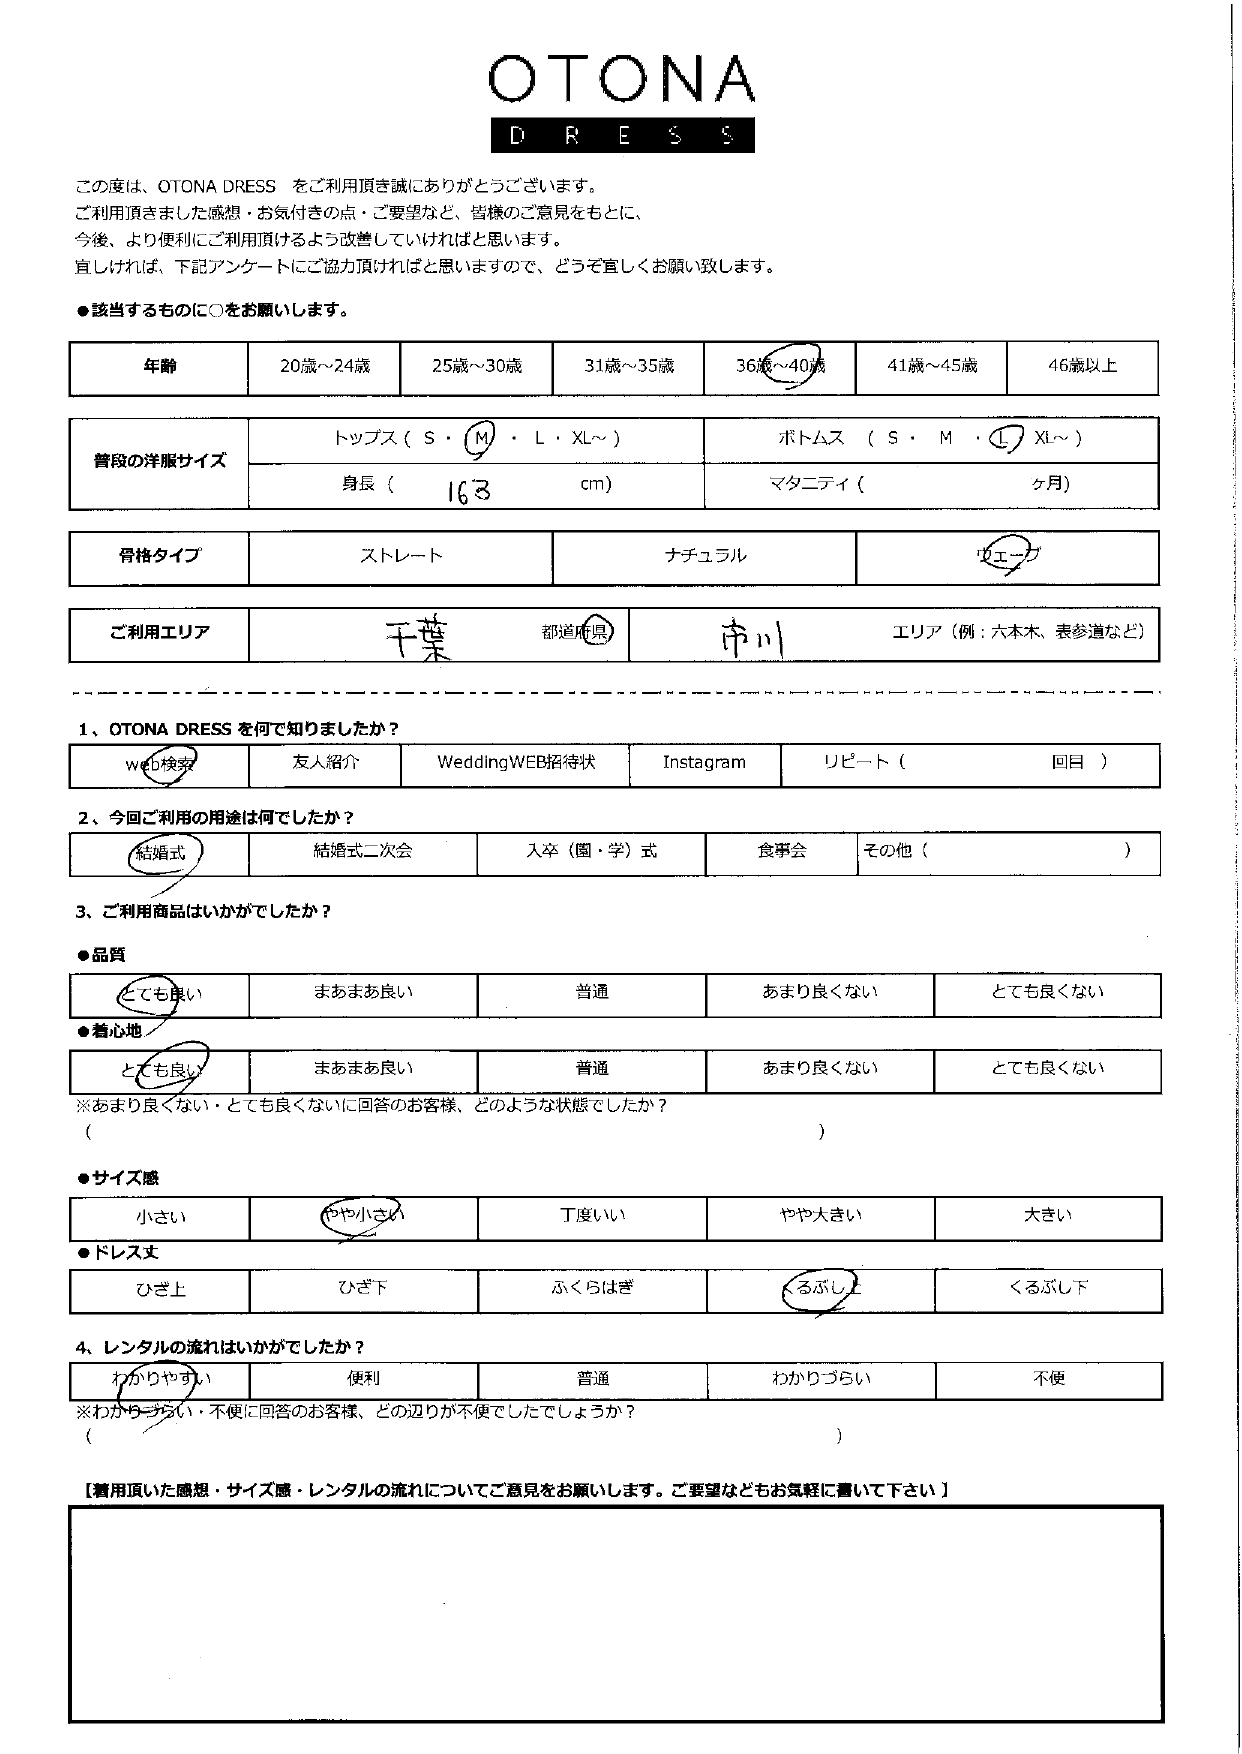 OTONA
DRESS
この度は、OTONA DRESS をご利用頂き誠にありがとうございます。
ご利用頂きました感想・お気付きの点・ご要望など、皆様のご意見をもとに、
今後、より便利にご利用頂けるよう改善していければと思います。
宜しければ、下記アンケートにご協力頂ければと思いますので、どうぞ宜しくお願い致します。
●該当するものに○をお願いします。
年齢 20歳～24歳 25歳～30歳 31歳～35歳 36歳～40歳 41歳～45歳 46歳以上
普段の洋服サイズ トップス ( S ・ M ・ L ・ XL～ ) ボトムス ( S ・ M ・ L XL～ )
身長 ( 163 cm) マタニティ ( ヶ月)
骨格タイプ ストレート ナチュラル ウェーブ
ご利用エリア 千葉 都道府県 市川 エリア（例：六本木、表参道など）
1、OTONA DRESS を何で知りましたか？
web検索 友人紹介 WeddingWEB招待状 Instagram リピート ( 回目 )
2、今回ご利用の用途は何でしたか？
結婚式 結婚式二次会 入卒（園・学）式 食事会 その他 ( )
3、ご利用商品はいかがでしたか？
●品質
とても良い まあまあ良い 普通 あまり良くない とても良くない
●着心地
とても良い まあまあ良い 普通 あまり良くない とても良くない
※あまり良くない・とても良くないに回答のお客様、どのような状態でしたか？
( )
●サイズ感
小さい やや小さい 丁度いい やや大きい 大きい
●ドレス丈
ひざ上 ひざ下 ふくらはぎ くるぶし上 くるぶし下
4、レンタルの流れはいかがでしたか？
わかりやすい 便利 普通 わかりづらい 不便
※わかりづらい・不便に回答のお客様、どの辺りが不便でしたでしょうか？
( )
【着用頂いた感想・サイズ感・レンタルの流れについてご意見をお願いします。ご要望などもお気軽に書いて下さい】